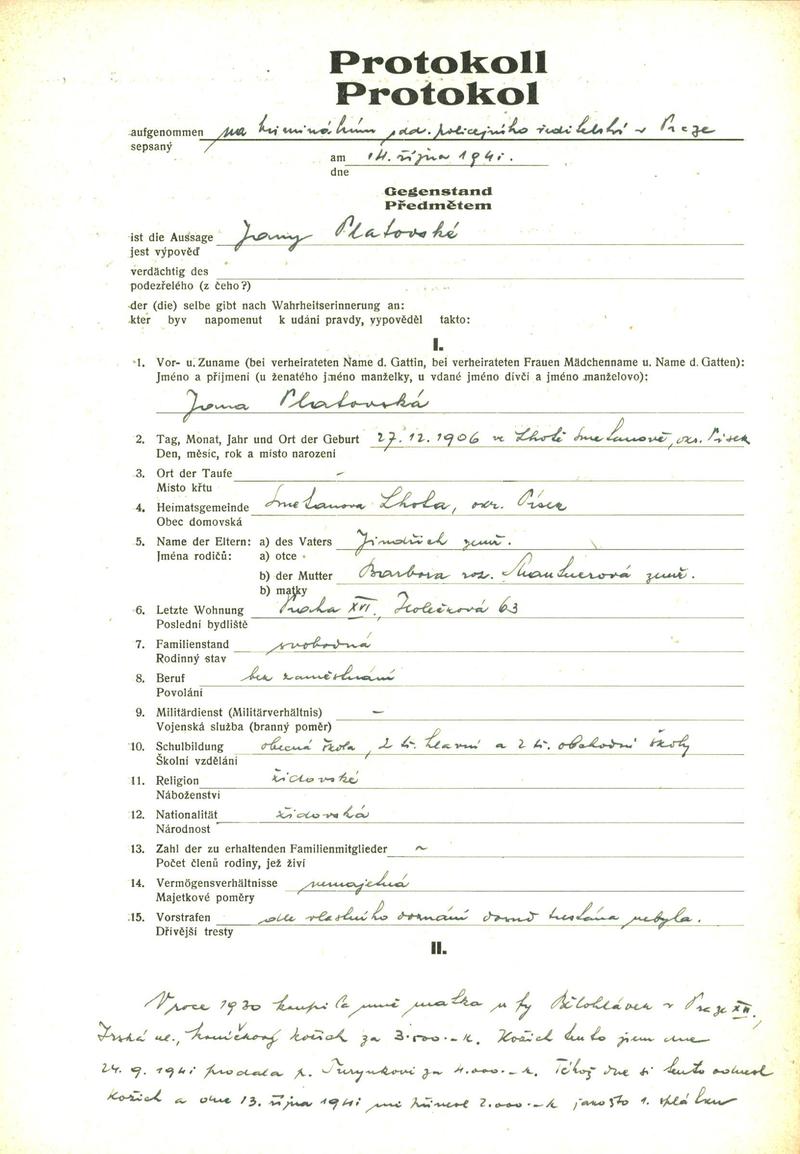 Protokoll
Protokol
aufgenommen na kriminálním odd. policejního ředitelství v Praze
sepsaný
am 14. října 1941.
dne
Gegenstand
Předmětem
ist die Aussage Jany Platovské
jest výpověď
verdächtig des
podezřelého (z čeho?)
der (die) selbe gibt nach Wahrheitserinnerung an:
kter byv napomenut k udání pravdy, vypověděl takto:
I.
1. Vor- u. Zuname (bei verheirateten Name d. Gattin, bei verheirateten Frauen Mädchenname u. Name d. Gatten):
Jméno a příjmení (u ženatého jméno manželky, u vdané jméno dívčí a jméno manželovo):
Jana Platovská
2. Tag, Monat, Jahr und Ort der Geburt 27. 12. 1906 ve Lhotě Smetanově, okr. Písek
Den, měsíc, rok a místo narození
3. Ort der Taufe -
Místo křtu
4. Heimatsgemeinde Smetanova Lhota, okr. Písek
Obec domovská
5. Name der Eltern: a) des Vaters Jindřich zemř.
Jména rodičů: a) otce
b) der Mutter Barbora roz. zemř.
b) matky
6. Letzte Wohnung Praha XVI., Holečková 63
Poslední bydliště
7. Familienstand svobodná
Rodinný stav
8. Beruf bez zaměstnání
Povolání
9. Militärdienst (Militärverhältnis) -
Vojenská služba (branný poměr)
10. Schulbildung obecná škola, 2 tř. hlavní a 2 tř. obchodní školy
Školní vzdělání
11. Religion židovské
Náboženství
12. Nationalität židovská
Národnost
13. Zahl der zu erhaltenden Familienmitglieder ~
Počet členů rodiny, jež živí
14. Vermögensverhältnisse nemajetná
Majetkové poměry
15. Vorstrafen dle vlastního doznání dosud trestána nebyla.
Dřívější tresty
II.
V roce 1930 koupila mně matka u fy Bělohlávek v Praze XII.,
Irská ul., kožich za 3.000.- K. Kožich tento jsem dne
24. 9. 1941 prodala p. za 4.000.- K. Téhož dne si tento odnesl
kožich a dne 13. října 1941 mi přinesl 2.000.- K jakožto 1. splátku